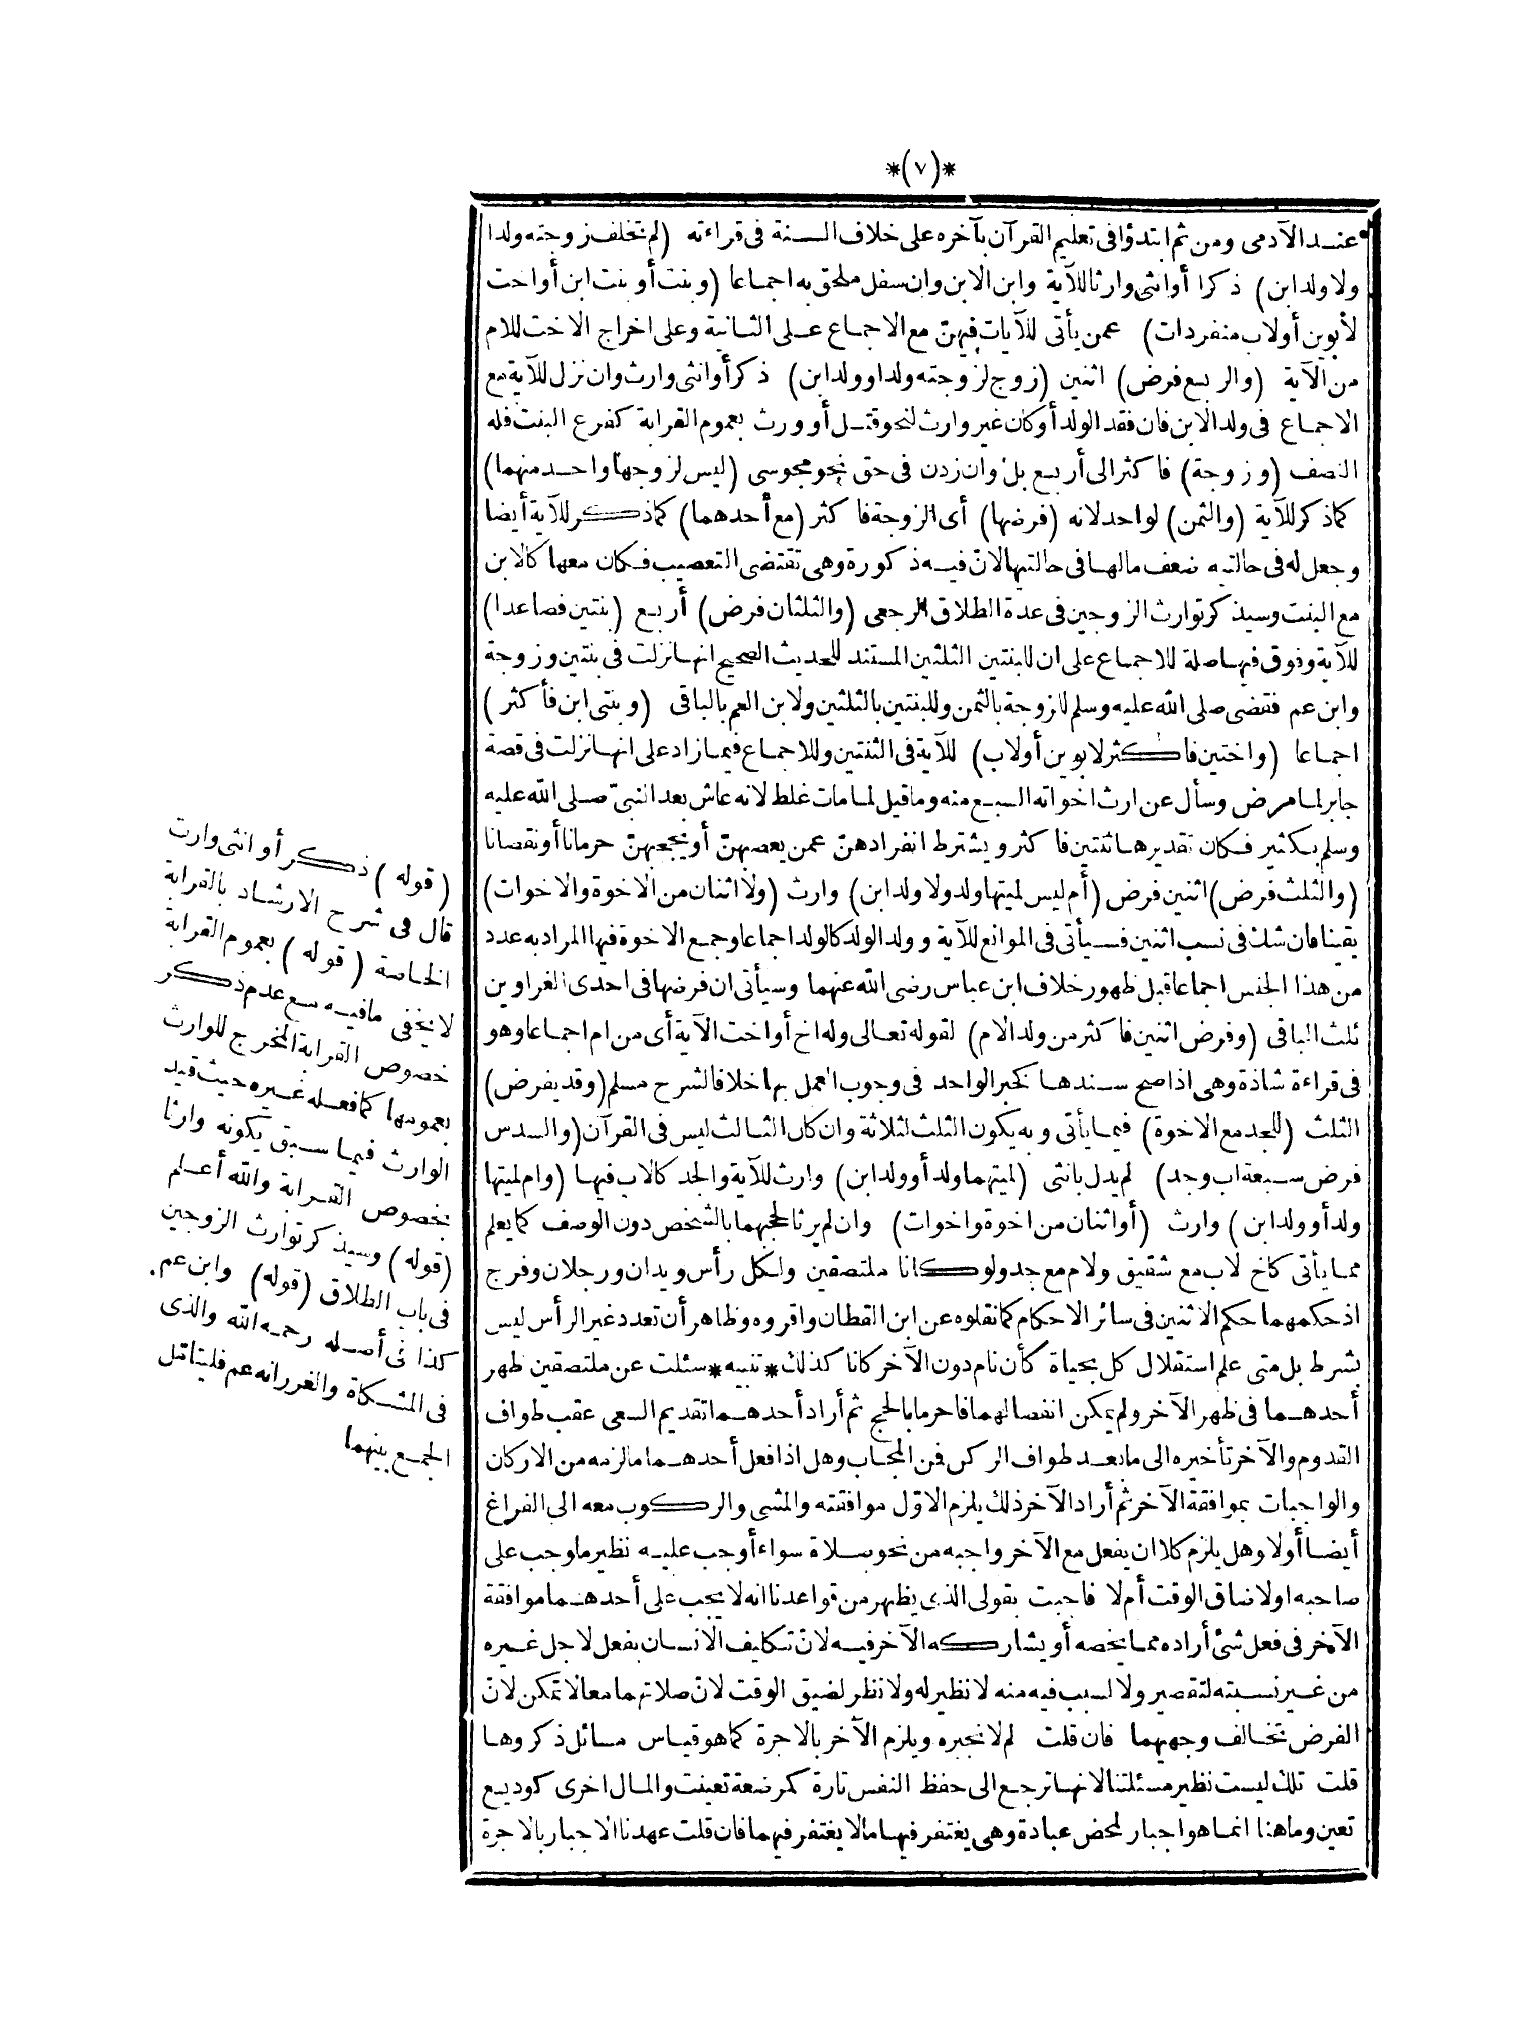 *(٧)*
عند الآدمى ومن ثم ابتدؤا فى تعليم القرآن بآخره على خلاف السنة فى قراءته (لم تخلف زوجته ولدا
ولا ولد ابن) ذكرا أو انثى وارثا للآية وابن الابن وان سفل ملحق به اجماعا (وبنت أو بنت ابن أو اخت
لأبوين أو لاب منفردات) عمن يأتى للآيات فيهنّ مع الاجماع على الثانية وعلى اخراج الاخت للام
من الآية (والربع فرض) اثنين (زوج لزوجته ولد او ولد ابن) ذكر أو انثى وارث وان نزل للآية مع
الاجماع فى ولد الابن فان فقد الولد أو كان غير وارث لنحو قتل أو ورث بعموم القرابة كفرع البنت فله
النصف (وزوجة) فاكثر الى أربع بل وان زدن فى حق نحو مجوسى (ليس لزوجها واحد منهما)
كما ذكر للآية (والثمن) لواحد لانه (فرضها) أى الزوجة فاكثر (مع أحدهما) كما ذكر للآية أيضا
وجعل له فى حالتيه ضعف مالها فى حالتيها لانّ فيه ذكورة وهى تقتضى التعصيب فكان معها كالابن
مع البنت وسيذكر توارث الزوجين فى عدة الطلاق الرجعى (والثلثان فرض) أربع (بنتين فصاعدا)
للآية وفوق فيها صلة للاجماع على ان للبنتين الثلثين المستند للحديث الصحيح انها نزلت فى بنتين وزوجة
وابن عم فقضى صلى الله عليه وسلم للزوجة بالثمن وللبنتين بالثلثين ولابن العم بالباقى (وبنتى ابن فأكثر)
اجماعا (واختين فاكثر لابوين أو لاب) للآية فى الثنتين وللاجماع فيما زاد على انها نزلت فى قصة
جابر لما مرض وسأل عن ارث اخواته السبع منه وما قيل لما مات غلط لانه عاش بعد النبىّ صلى الله عليه
وسلم بكثير فكان تقديرها ثنتين فاكثر ويشترط انفرادهنّ عمن يعصبهنّ أو يحجبهنّ حرمانا أو نقصانا
(والثلث فرض) اثنين فرض (أم ليس لميتها ولد ولا ولد ابن) وارث (ولا اثنان من الاخوة والاخوات)
يقينا فان شك فى نسب اثنين فسيأتى فى الموانع للآية وولد الولد كالولد اجماعا وجمع الاخوة فيها المراد به عدد
من هذا الجنس اجماعا قبل ظهور خلاف ابن عباس رضى الله عنهما وسيأتى ان فرضها فى احدى الغراوين
ثلث الباقى (وفرض اثنين فاكثر من ولد الام) لقوله تعالى وله اخ أو اخت الآية أى من ام اجماعا وهو
فى قراءة شاذة وهى اذا صح سندها كخبر الواحد فى وجوب العمل بها خلافا لشرح مسلم (وقد يفرض)
الثلث (للجد مع الاخوة) فيما يأتى وبه يكون الثلث لثلاثة وان كان الثالث ليس فى القرآن (والسدس
فرض سبعة اب وجد) لم يدل بانثى (لميتهما ولد أو ولد ابن) وارث للآية والجد كالاب فيها (وام لميتها
ولد أو ولد ابن) وارث (أو اثنان من اخوة واخوات) وان لم يرثا لحجبهما بالشخص دون الوصف كما يعلم
مما يأتى كاخ لاب مع شقيق ولام مع جد ولو كانا ملتصقين ولكل رأس ويدان ورجلان وفرج
اذ حكمهما حكم الاثنين فى سائر الاحكام كما نقلوه عن ابن القطان واقروه وظاهر أن تعدد غير الرأس ليس
بشرط بل متى علم استقلال كل بحياة كأن نام دون الآخر كانا كذلك *تنبيه* سئلت عن ملتصقين ظهر
أحدهما فى ظهر الآخر ولم يمكن انفصالهما فاحرما بالحج ثم أراد أحدهما تقديم السعى عقب طواف
القدوم والآخر تأخيره الى ما بعد طواف الركن فمن المجاب وهل اذا فعل أحدهما ما لزمه من الاركان
والواجبات بموافقة الآخر ثم أراد الآخر ذلك يلزم الاوّل موافقته والمشى والركوب معه الى الفراغ
أيضا أولا وهل يلزم كلا ان يفعل مع الآخر واجبه من نحو صلاة سواء أوجب عليه نظير ما وجب على
صاحبه اولا ضاق الوقت أم لا فاجبت بقولى الذى يظهر من قواعدنا انه لا يجب على أحدهما موافقة
الآخر فى فعل شئ أراده مما يخصه أو يشاركه الآخر فيه لانّ تكليف الانسان بفعل لاجل غيره
من غير نسبته لتقصير ولا لسبب فيه منه لا نظير له ولا نظر لضيق الوقت لانّ صلاتهما معا لا تمكن لانّ
الفرض تخالف وجهيهما فان قلت لم لا نجبره ويلزم الآخر بالاجرة كما هو قياس مسائل ذكروها
قلت تلك ليست نظير مسئلتنا لانها ترجع الى حفظ النفس تارة كمرضعة تعينت والمال اخرى كوديع
تعين وما هنا انما هو اجبار لمحض عبادة وهى يغتفر فيها مالا يغتفر فيهما فان قلت عهدنا الاجبار بالاجرة
(قوله) ذكر أو انثى وارث
قال فى شرح الارشاد بالقرابة
الخاصة (قوله) بعموم القرابة
لا يخفى ما فيه مع عدم ذكر
خصوص القرابة المخرج للوارث
بعمومها كما فعله غيره حيث قيد
الوارث فيما سبق بكونه وارثا
بخصوص القرابة والله أعلم
(قوله) وسيذكر توارث الزوجين
فى باب الطلاق (قوله) وابن عم
كذا فى أصله رحمه الله والذى
فى المشكاة والغرر انه عم فليتأمل
الجمع بينهما